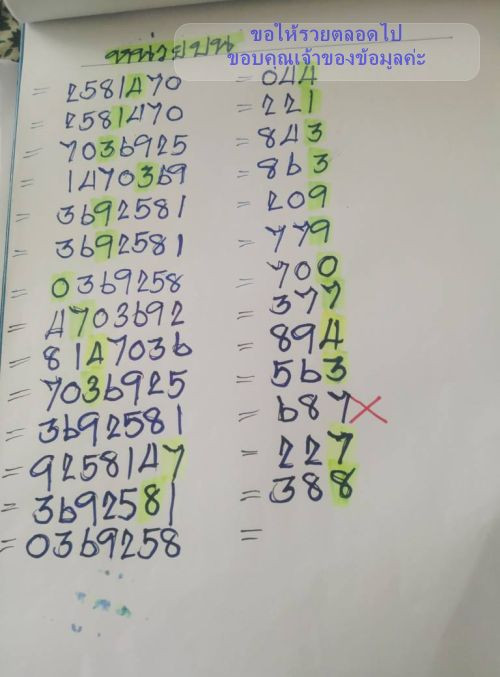 ขอให้รวยตลอดไป
ขอบคุณเจ้าของข้อมูลค่ะ
หน่วยบน
= 2581470 = 044
= 2581470 = 221
= 7036925 = 843
= 1470369 = 863
= 3692581 = 209
= 3692581 = 779
= 0369258 = 700
= 4703692 = 377
= 8147036 = 894
= 7036925 = 563
= 3692581 = 687 X
= 9258147 = 227
= 3692581 = 388
= 0369258 =